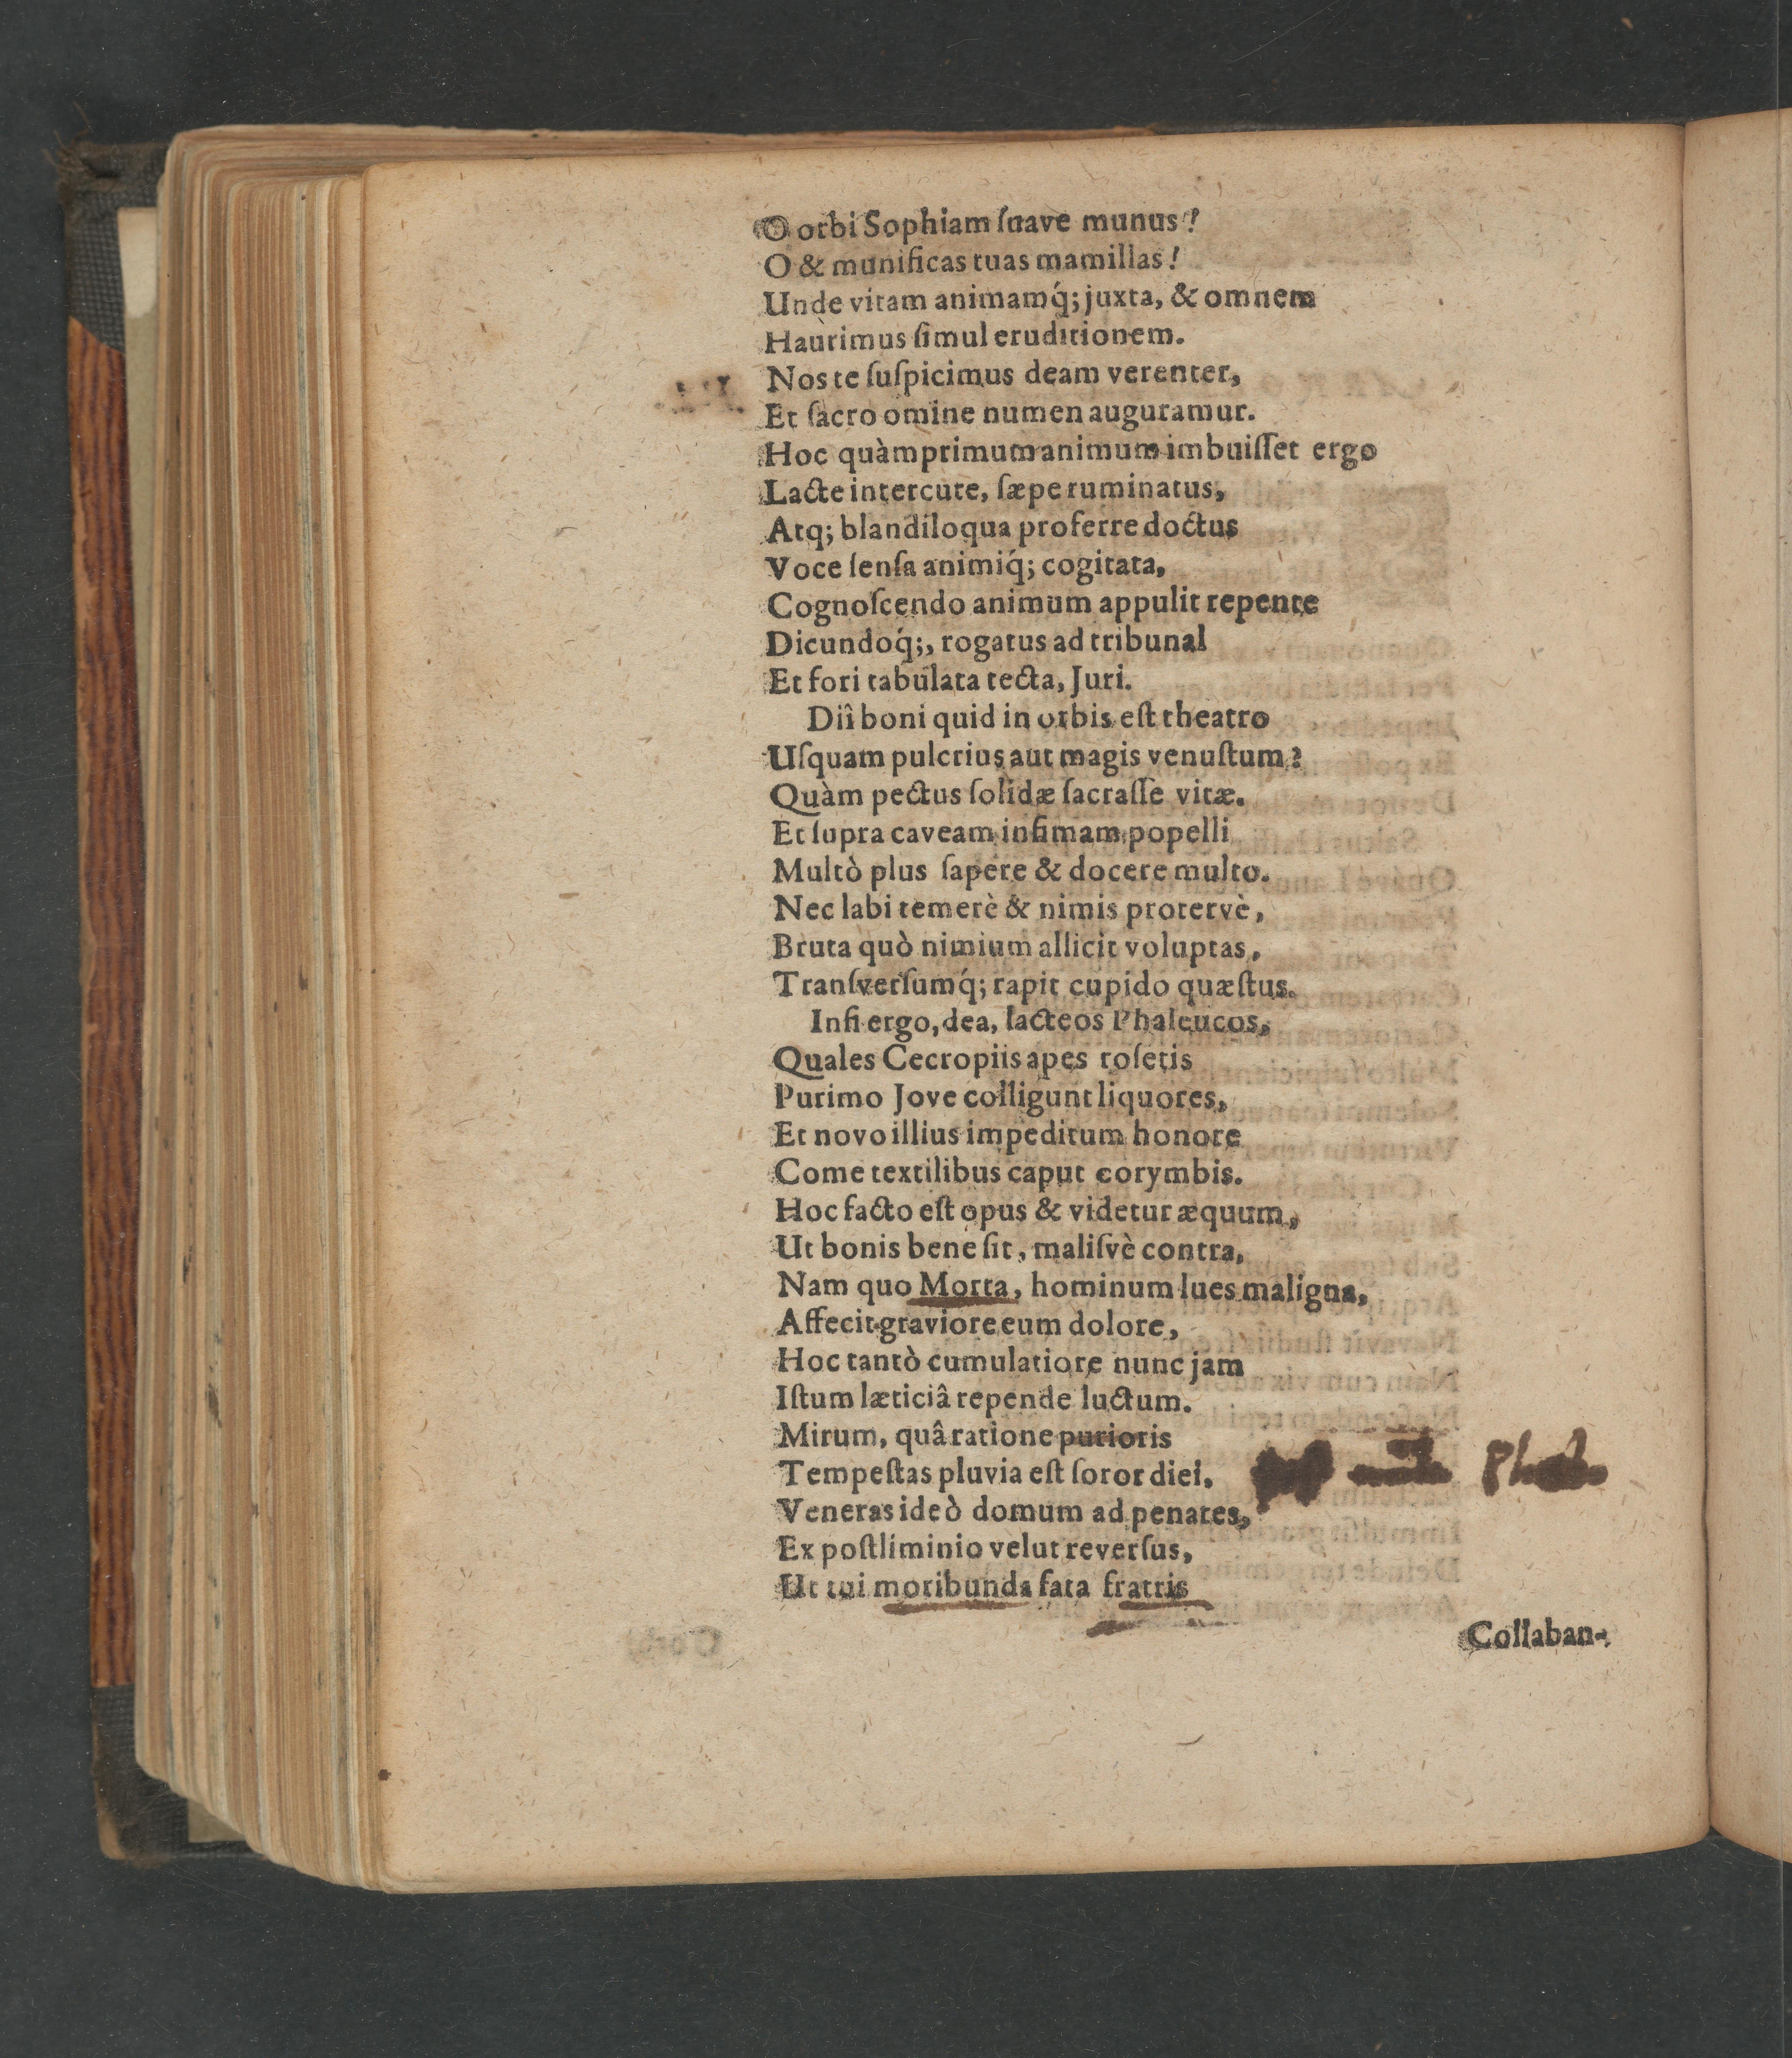 O orbi Sophiam ſuave munus!
O & munificas tuas mamillas!
Unde vitam animamq́; juxta, & omnem
Haurimus ſimul eruditionem.
Nos te ſuſpicimus deam verenter,
Et ſacro omine numen auguramur.
Hoc quàmprimum animum imbuiſſet ergo
Lacte intercute, ſæpe ruminatus,
Atq; blandiloqua proferre doctus
Voce ſenſa animiq́; cogitata,
Cognoſcendo animum appulit repente
Dicundoq́;, rogatus ad tribunal
Et fori tabulata tecta, Juri.
Diî boni quid in orbis eſt theatro
Uſquam pulcrius aut magis venuſtum?
Quàm pectus ſolidæ ſacraſſe vitæ.
Et ſupra caveam infimam popelli
Multò plus ſapere & docere multo.
Nec labi temerè & nimis protervè,
Bruta quò nimium allicit voluptas,
Tranſverſumq́; rapit cupido quæſtus.
Infi ergo, dea, lacteos Phaleucos,
Quales Cecropiis apes roſetis
Purimo Jove colligunt liquores,
Et novo illius impeditum honore
Come textilibus caput corymbis.
Hoc facto eſt opus & videtur æquum,
Ut bonis bene ſit, maliſvè contra,
Nam quo Morta, hominum lues maligna,
Affecit graviore eum dolore,
Hoc tantò cumulatiore nunc jam
Iſtum læticiâ repende luctum.
Mirum, quâ ratione purioris
Tempeſtas pluvia eſt ſoror diei,
Veneras ideò domum ad penates,
Ex poſtliminio velut reverſus,
Ut tui moribunda fata fratris
Collaban-